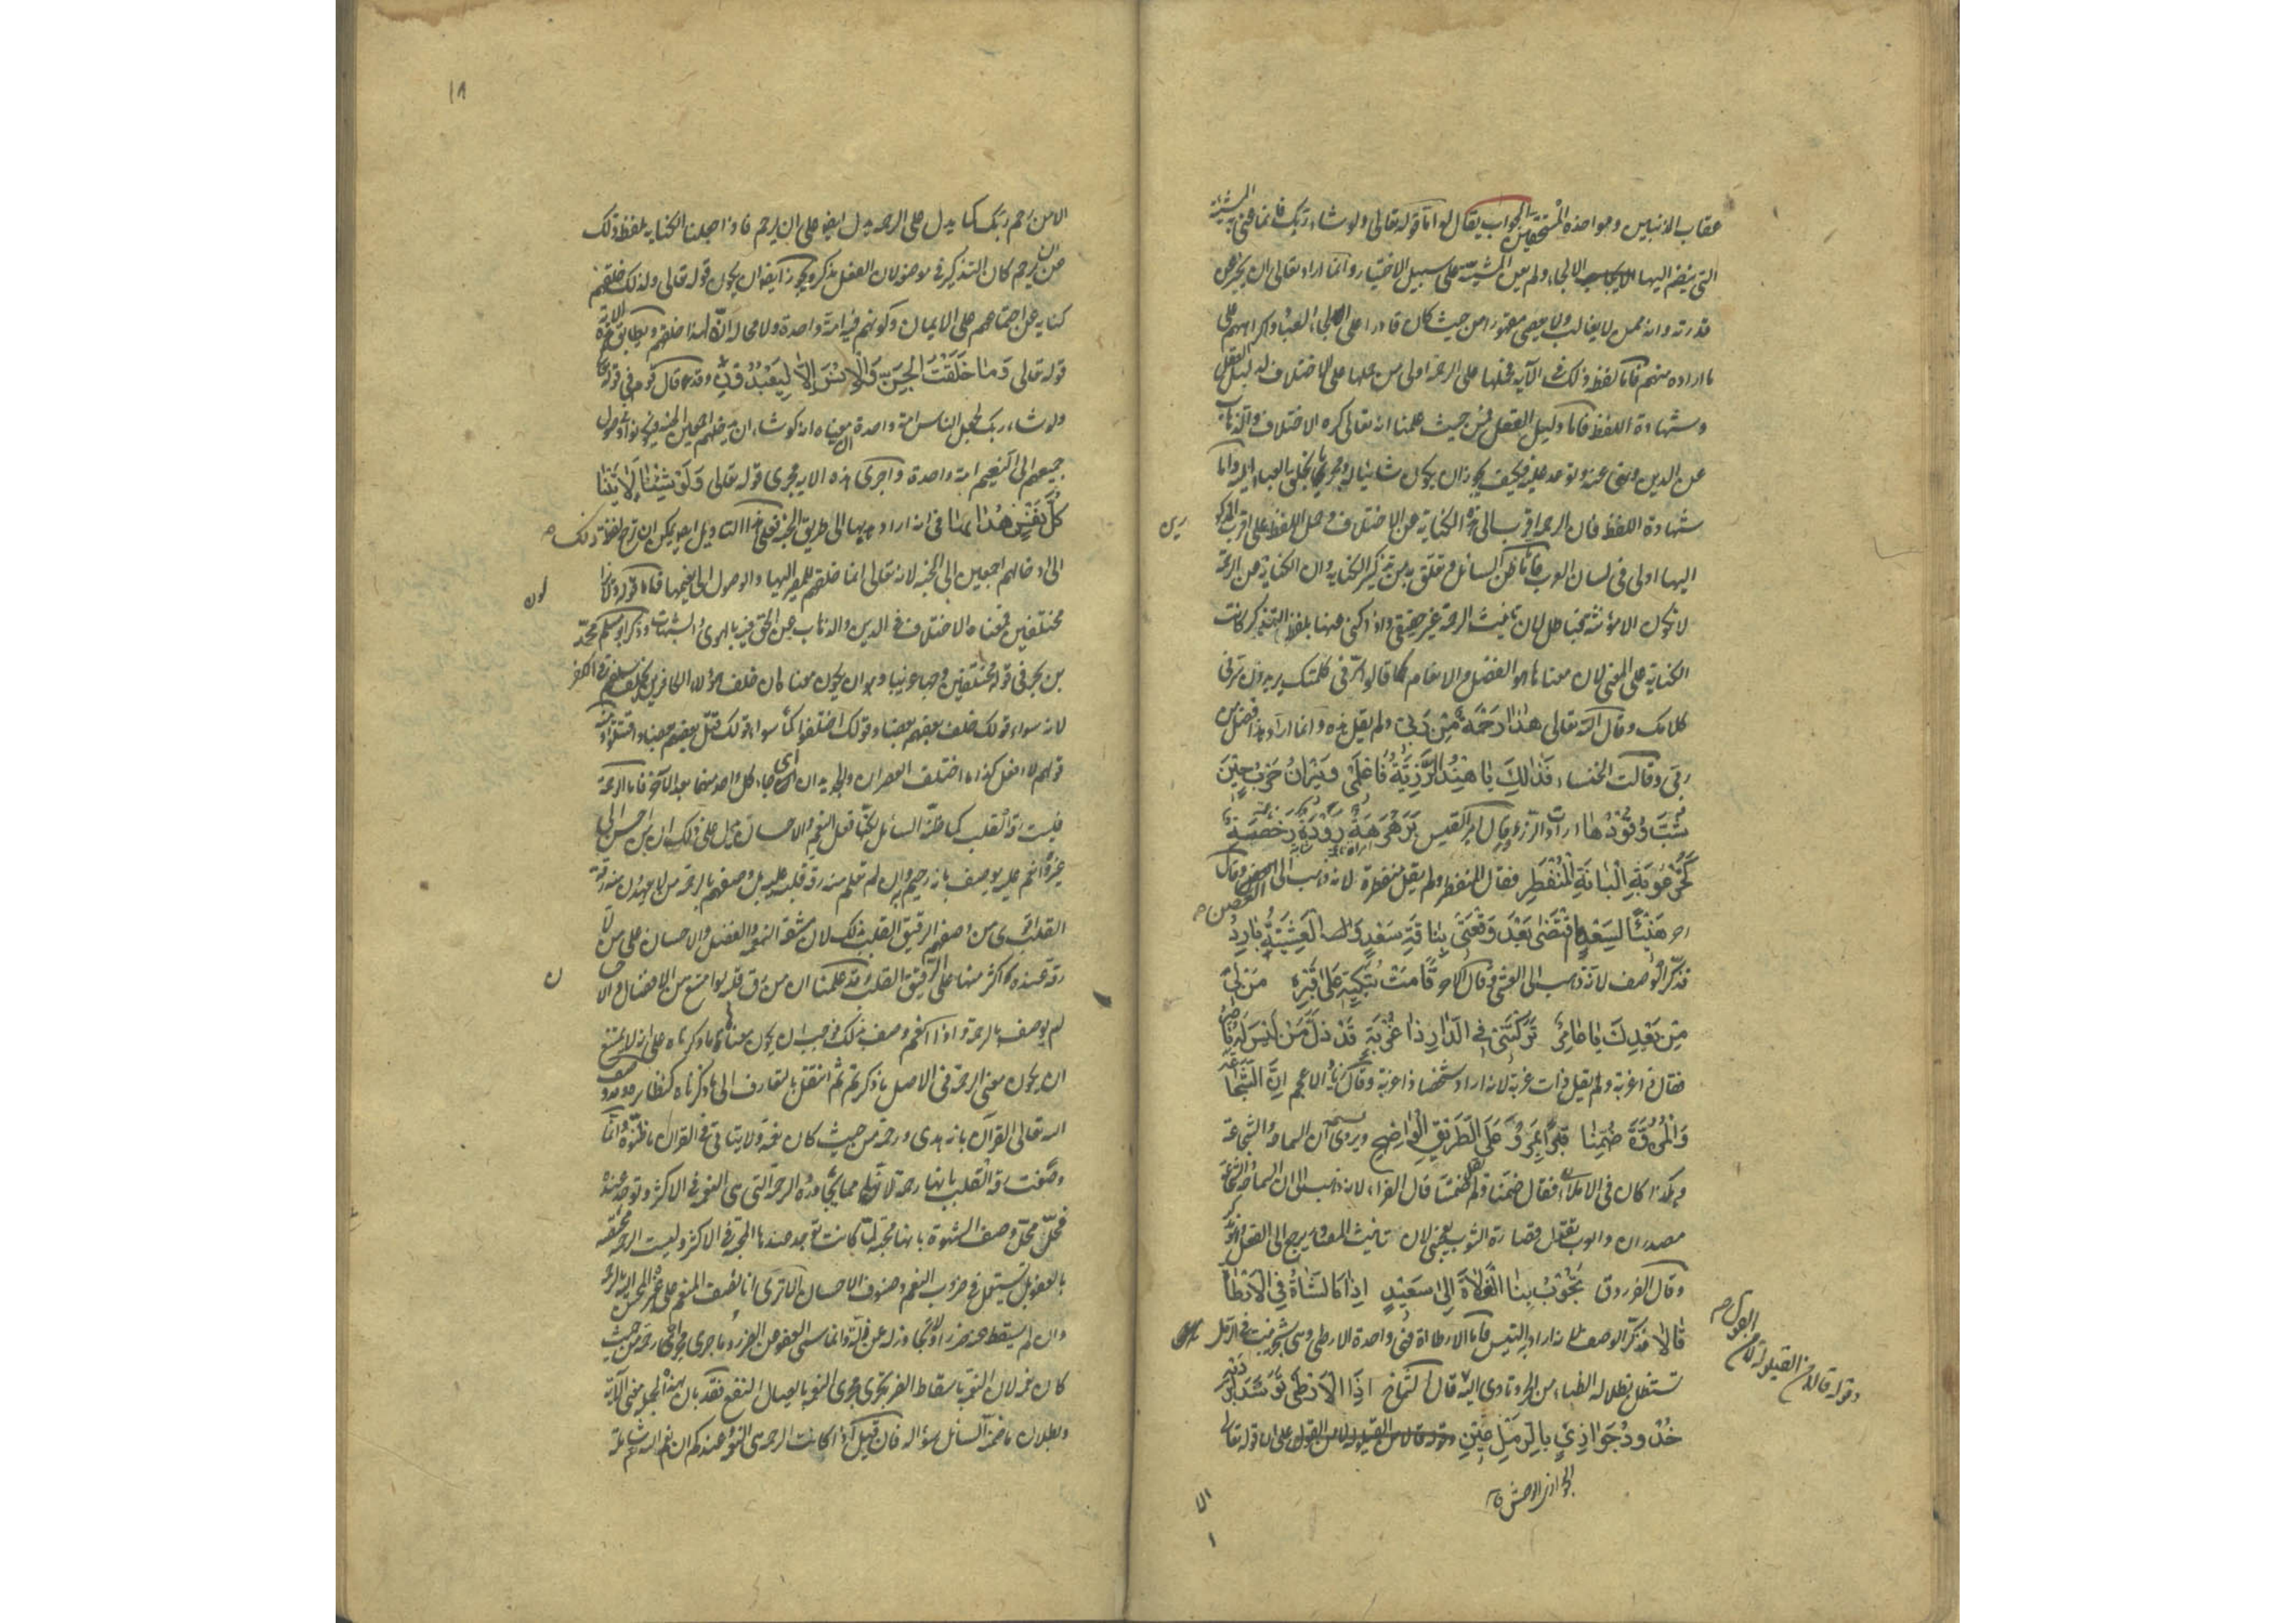 عقاب المذنبين ومواخذة المستحقين الجواب يقال له اما قوله تعالى ولو شاء ربك فانما عنى به المشيئة
التي ينضم اليها الالجاء ولم يعن المشيئة على سبيل الاختيار وانما اراد تعالى ان يخبر عن
قدرته وانه ممن لا يغالب ولا يعصى مقهورا من حيث كان قادرا على الجاء العباد واكراههم على
ما اراده منهم فاما لفظة ذلك في الآية فحملها على الرحمة اولى من حملها على الاختلاف لدليل العقل
وشهادة اللفظ فاما دليل العقل فمن حيث علمنا انه تعالى كره الاختلاف والذهاب
عن الدين ونهى عنه وتوعد عليه فكيف يجوز ان يكون شائيا له ومجريا بخلق العباد اليه واما
شهادة اللفظ فلان الرحمة اقرب الى هذه الكناية من الاختلاف وحمل اللفظ على اقرب المذكورين
اليها اولى في لسان العرب فاما ما ظن السائل وتعلق به من تذكير الكناية وان الكناية عن الرحمة
لا تكون الا مؤنثة فباطل لان تانيث الرحمة غير حقيقي واذا كنى عنها بلفظ التذكير كانت
الكناية على المعنى لان معناها هو الفضل والانعام كما قالوا سرني كلمتك يريدون سرني
كلامك وقال الله تعالى هذا رحمة من ربي ولم يقل هذه وانما اراد هذا فضل من
ربي وقالت الخنساء فذلك يا هند الرزية فاعلمي ونيران حرب حين
شب وقودها ارادت الرزء وقال امرؤ القيس برهرهة رودة رخصة
كخرعوبة البانة المنفطر فقال المنفطر ولم يقل المنفطرة لانه ذهب الى الغصن وقال
آخر هنيئا لسعد ما اقتضى بعد وقعتي بناقة سعد والعشية بارد
فذكر الوصف لانه ذهب الى العشي وقال الاخر قامت تبكيه على قبره من لي
من بعدك يا عامر تركتني في الدار ذا غربة قد ذل من ليس له ناصر
فقال ذا غربة ولم يقل ذات غربة لانه اراد شخصا ذا غربة وقال زياد الاعجم ان الشجاعة
والمروة ضمنا قبرا بمرو على الطريق الواضح ويروى ان السماحة والشجاعة
وهكذا كان في الاملاء فقال ضمنا ولم يقل ضمنتا قال الفراء لانه ذهب الى ان السماحة والشجاعة
مصدران والعرب تقول قصارة الثوب يعجبني لان تانيث المصادر يرجع الى الفعل وهو مذكر
وقال الفرزدق تجوب بنا الفلاة الى سعيد اذا ما الشاة في الارطاة
قالا فذكر الوصف لانه اراد التيس فاما الارطاة فهي واحدة الارطى وهي شجر تنبت في الرمل
تستظل بظلاله الظباء من الحر وتاوي اليه قال الشماخ اذا الارطى توسد ابرديه
خدود جوازي بالرمل عين على ان قوله تعالى
الجوازي الوحش
وقوله قالا من القيلولة لا من القول
الا
١٨
الا من رحم ربك كما يدل على الرحمة يدل ايضا على ان يرحم فاذا جعلنا الكناية بلفظة ذلك
عن ان يرحم كان التذكير في موضعه لان الفعل مذكر ويجوز ايضا ان يكون قوله تعالى ولذلك خلقهم
كناية عن اجتماعهم على الايمان وكونهم فيه امة واحدة ولا محالة انه لهذا خلقهم ويطابق هذه الآية
قوله تعالى وما خلقت الجن والانس الا ليعبدون وقد قال قوم في قوله تعالى
ولو شاء ربك لجعل الناس امة واحدة معناه انه لو شاء ان يدخلهم اجمعين الجنة فيكونوا في وصول
جميعهم الى النعيم امة واحدة واجرى هذه الاية مجرى قوله تعالى ولو شئنا لآتينا
كل نفس هداها في انه اراد هداها الى طريق الجنة فعلى هذا التاويل ايضا يمكن ان ترجع لفظة ذلك
الى ادخالهم اجمعين الى الجنة لانه تعالى انما خلقهم للمصير اليها والوصول الى نعيمها فاما قوله ولا يزالون
مختلفين فمعناه الاختلاف في الدين والذهاب عن الحق فيه بالهوى والشبهات وذكر ابو مسلم محمد
بن بحر في قوله مختلفين وجها غريبا وهو ان يكون معناه ان خلف هؤلاء الكافرين يخلف سلفهم في الكفر
لانه سواء قولك خلف بعضهم بعضا وقولك اختلفوا كما سواء قولك قتل بعضهم بعضا واقتتلوا ومنه
قولهم لا افعل كذا ما اختلف العصران والجديدان اي جاء كل واحد منهما بعد الآخر فاما الرحمة
فليست رقة القلب كما ظنه السائل لكنها فعل النعم والاحسان يدل على ذلك ان من احسن الى
غيره وانعم عليه يوصف بانه رحيم وان لم تعلم منه رقة قلب عليه بل وصفهم بالرحمة من لا يعهدون منه رقة
القلب اقوى من وصفهم الرقيق القلب بذلك لان مشقة النعمة والفضل والاحسان على من لا
رقة عنده اكثر منها على الرقيق القلب وقد علمنا ان من رق قلبه لو امتنع من الافضال والاحسان
لم يوصف بالرحمة واذا انعم وصف بذلك فوجب ان يكون معناها ما ذكرناه على انه لا يمتنع
ان يكون معنى الرحمة في الاصل ما ذكرتم ثم انتقل بالتعارف الى ما ذكرناه كنظائره وقد وصف
الله تعالى القرآن بانه هدى ورحمة من حيث كان نعمة ولا يتاتى في القرآن ما ظنوه وانما
وصفت رقة القلب بانها رحمة لانها مما يجاوره الرحمة التي هي النعمة في الاكثر وتوجد عنده
فحل محل وصف الشهوة بانها محبة لما كانت توجد عندها المحبة في الاكثر وليست الرحمة مختصة
بالعفو بل تستعمل في ضروب النعم وصنوف الاحسان الا ترى انا نصف المنعم على غيره المحسن اليه بالرحمة
وان لم يسقط عنه ضررا ولا تجاوز له عن زلة وانما سمي العفو عن الضرر وما جرى مجراه رحمة من حيث
كان نعمة لان النعمة باسقاط الضرر تجري مجرى النعمة بايصال النفع فقد بان بهذه الجملة معنى الآية
وبطلان ما ضمنه السائل سؤاله فان قيل اذا كانت الرحمة هي النعمة وعندكم ان نعم الله تعالى شاملة